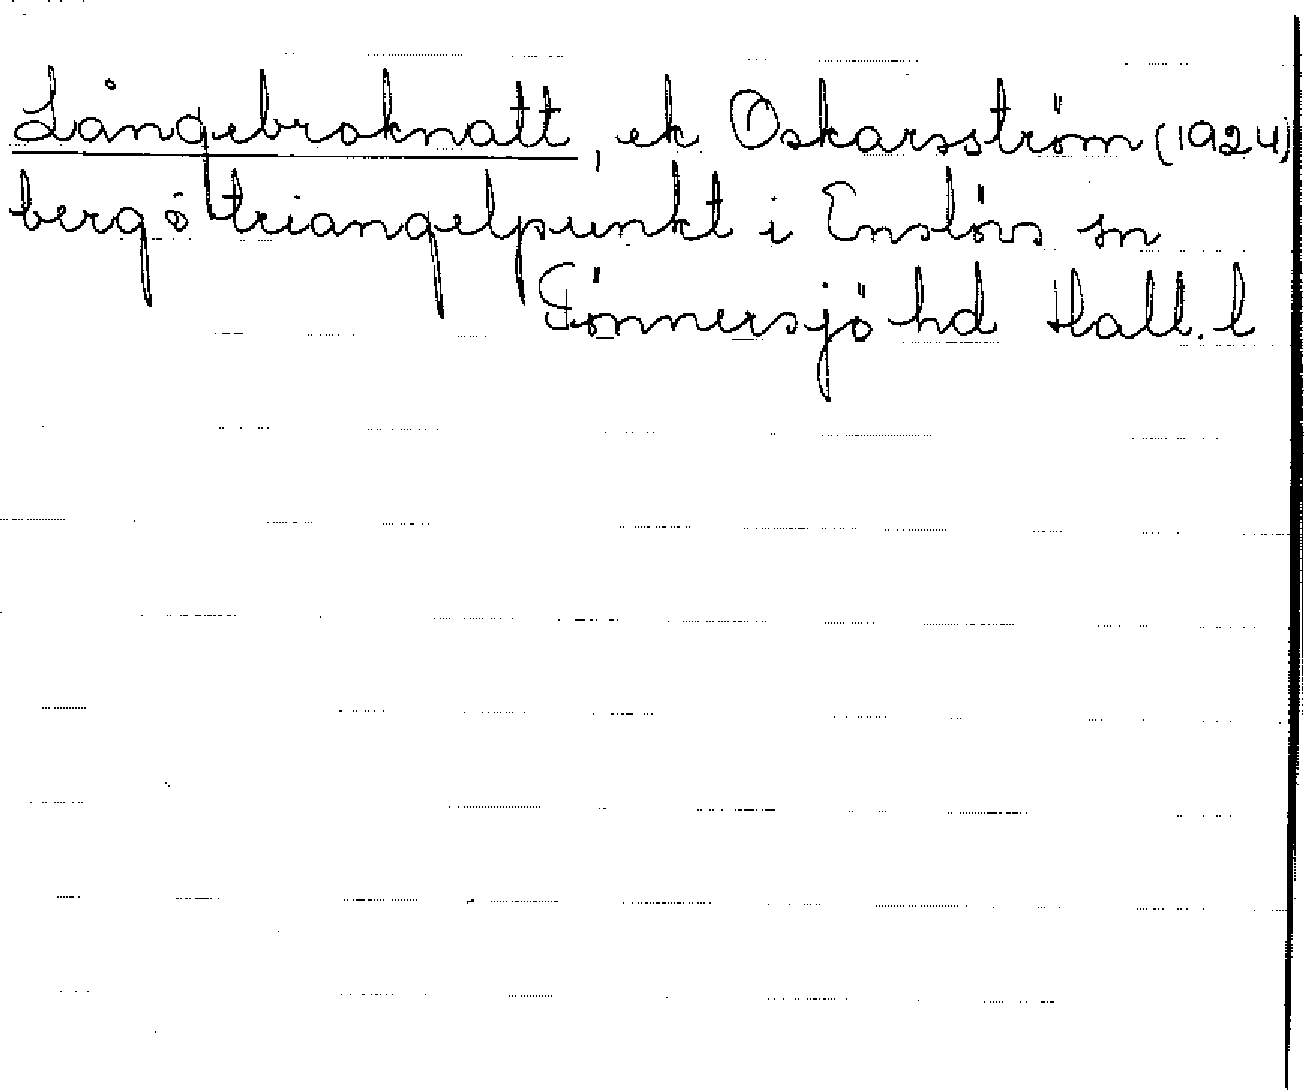 Långebroknatt, ek Oskarsström (1924)
berg o triangelpunkt i Enslövs sn
Tönnersjö hd Hall. l